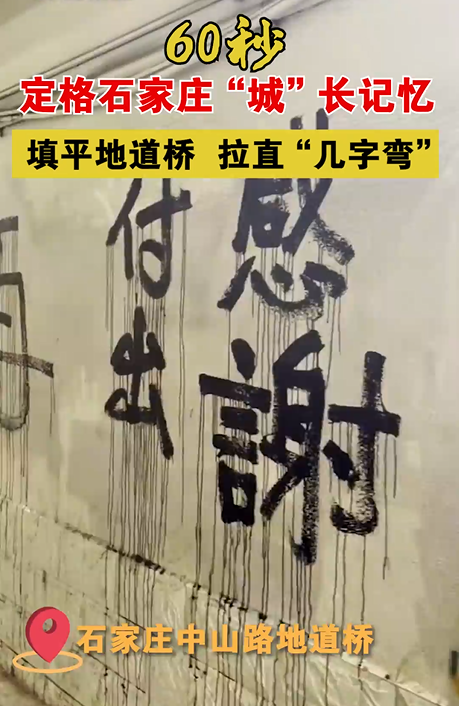 60秒
定格石家庄“城”长记忆
填平地道桥 拉直“几字弯”
感謝
付出
石家庄中山路地道桥